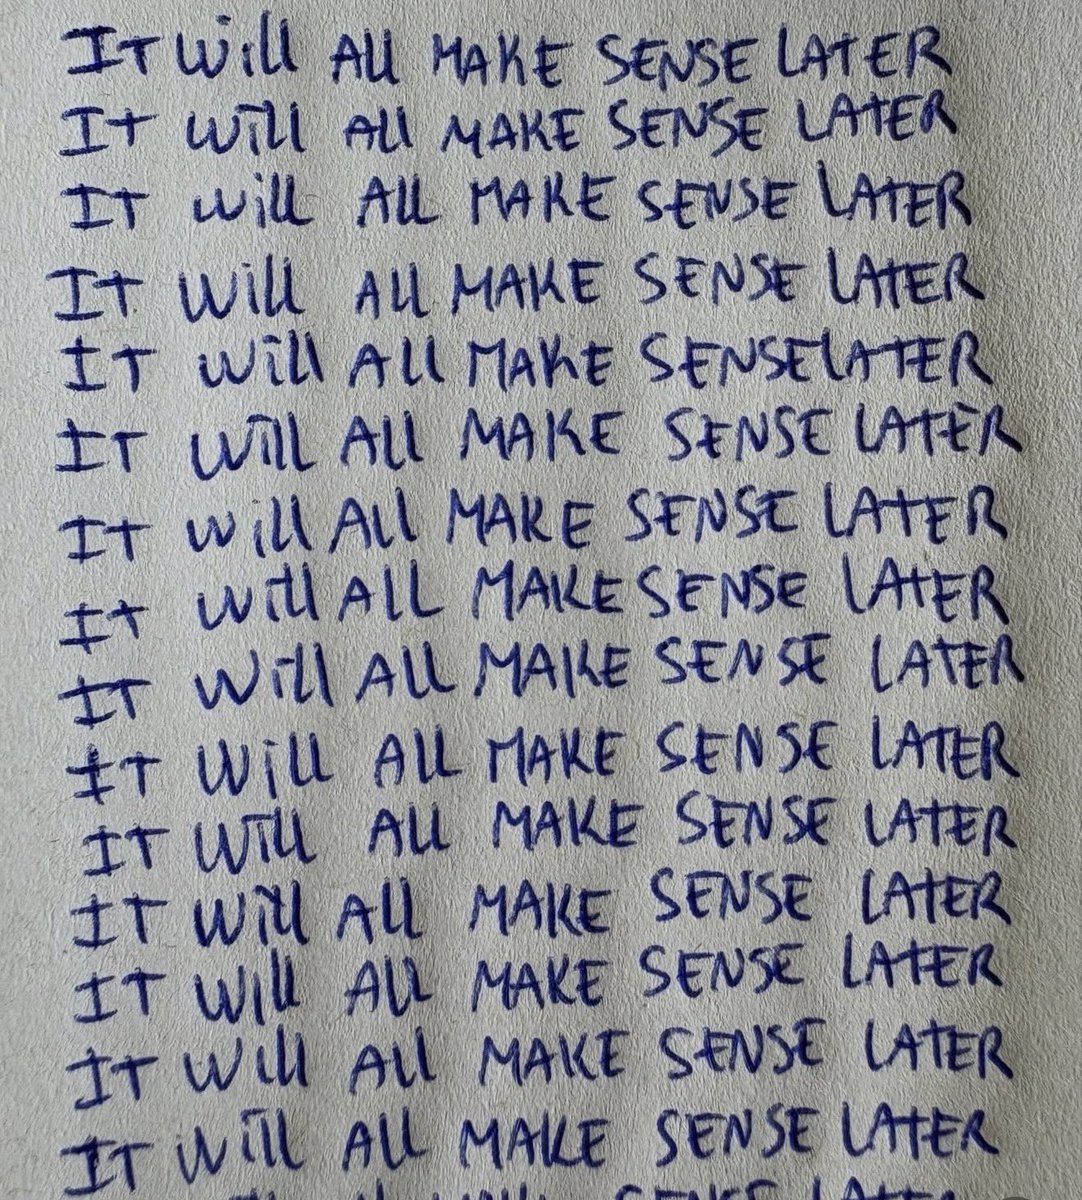 IT Will All MAKE SENSE LATER
It Will All MAKE SENSE LAtER
IT Will All MAKE SENSE LATER
IT Will All MAKE SENSE LAtER
IT Will All MAKE SENSE LATER
IT Will All MAKE SENSE LATER
IT Will All MAKE SENSE LATER
It Will ALL MAKE SENSE LAtER
IT Will All MAKE SENSE LATER
IT Will All MAKE SENSE LATER
IT Will All MAKE SENSE LATER
IT Will All MAKE SENSE LAtER
IT Will All MAKE SENSE LAtER
IT Will All MAKE SENSE LAtER
IT Will All MAKE SENSE LAtER
SENSE LATER